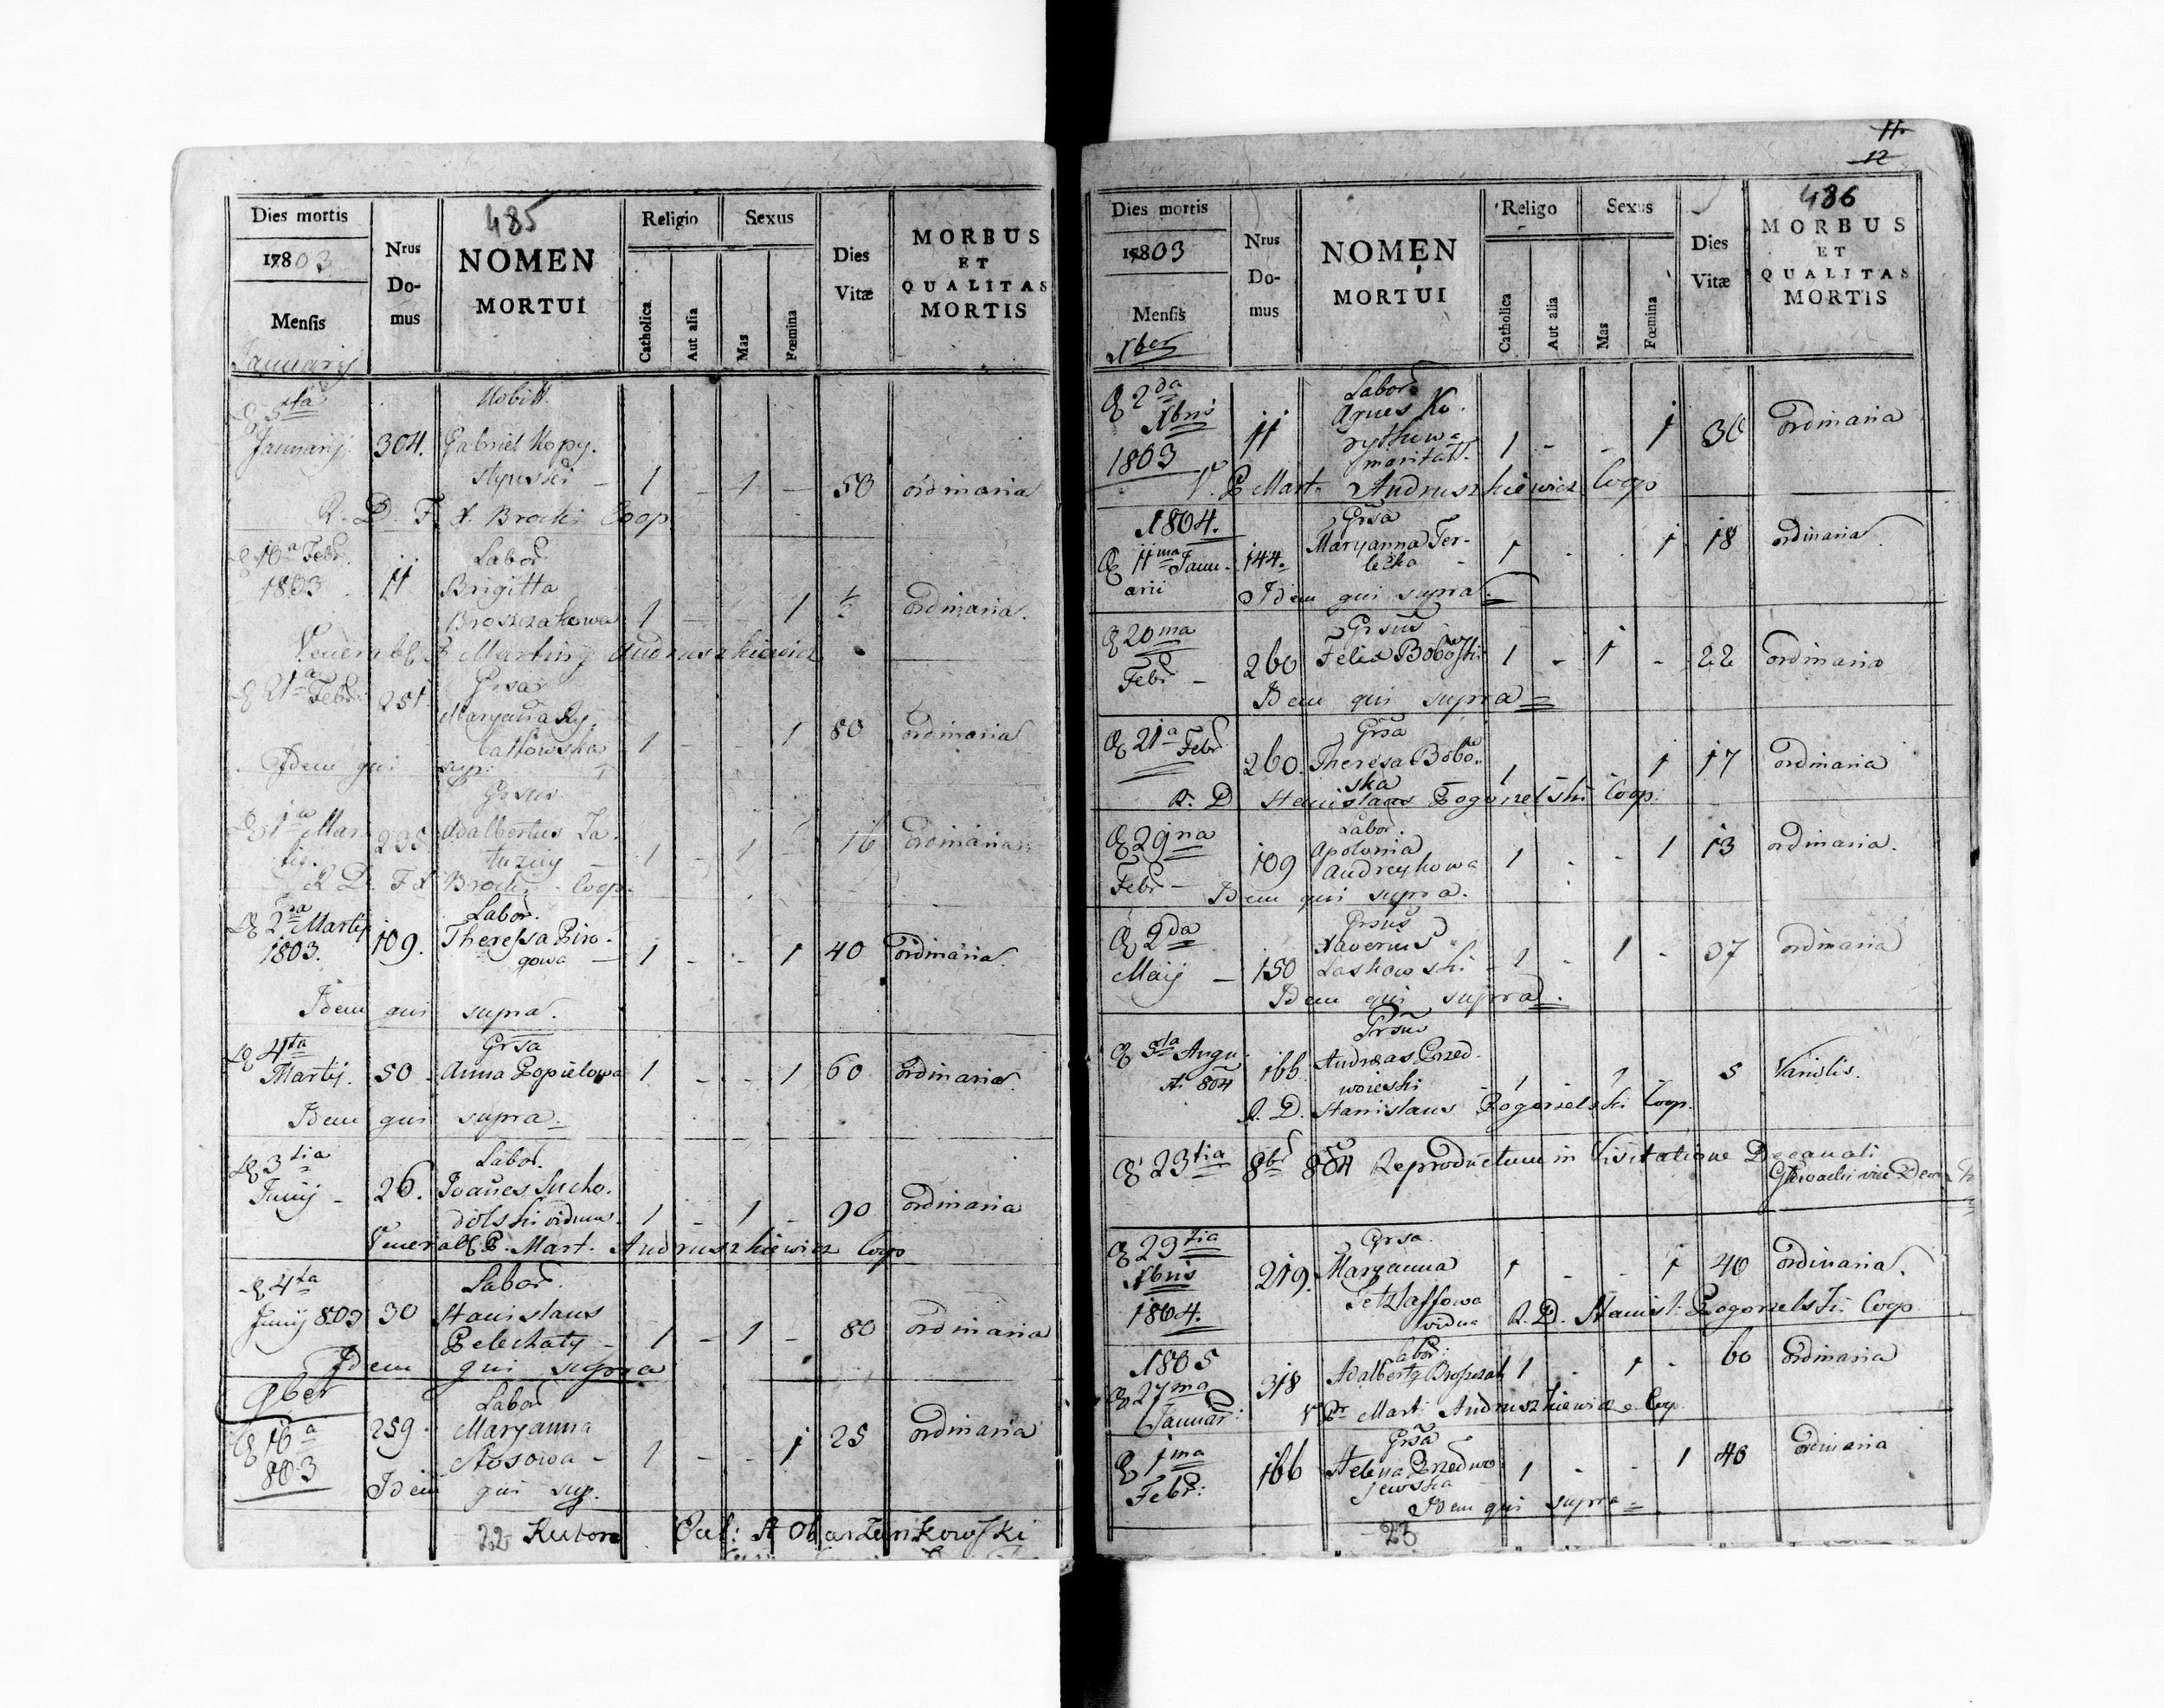 485
Dies mortis
1803
Mensis
Januarij
Nrus Do-mus
NOMEN
MORTUI
Religio
Catholica
Aut alia
Sexus
Mas
Fœmina
Dies Vitæ
MORBUS
ET
QUALITAS
MORTIS
5ta
Januarij 304. Gabriel Kopy-
styński 1 - 1 - 50 ordinaria
R. D. F. X. Brocki Coop.
10a Febr. Labor.
1803 11 Brigitta
Broszczakowa 1 - - 1 ½ ordinaria.
Venerabl. P. Martinus Andruszkiewicz
21a Febr. 251 Grsa
Maryanna Ry-
1 - - 1 80 ordinaria
Idem qui sup.
Grsus
1a Mar- 295 Adalbertus Ja-
tij. 1 - 1 - 16 ordinaria
R. D. F. X. Brocki Coop.
2da Martij Labor.
1803. 109. Theressa Piro-
gowa 1 - - 1 40 ordinaria.
Idem qui supra.
4ta Grsa
Martij. 50 Anna Popielowa 1 - - 1 60 ordinaria.
Idem qui supra.
3tia Labor.
Junij - 26. Joanes Sucho-
dolski viduus. 1 - 1 - 90 ordinaria
Venerabl. P. Mart. Andruszkiewicz Coop
4ta Labor.
Junij 803 30 Stanislaus
Pelechaty - 1 - 1 - 80 ordinaria
Idem qui supra
9ber Labor
16a 259. Maryanna
803 Stosowa - 1 - - 1 25 ordinaria
Idem qui sup.
22
11.
12
486
Dies mortis
1803
Mensis
Xber
Nrus Do-mus
NOMEN
MORTUI
Religo
Catholica
Aut alia
Sexus
Mas
Fœmina
Dies Vitæ
MORBUS
ET
QUALITAS
MORTIS
2da Labor.
Xbris 11 Agnes Ko-
1803 rythowa 1 - - 1 30 ordinaria
V. P. Mart. Andruszkiewicz Coop
1804. Grsa
11ma Janu- 144. Maryanna Ter-
arii lecka - 1 - - 1 18 ordinaria.
Idem qui supra.
20ma Grsus
Febr - 260 Felix 1 - 1 - 22 ordinaria
Idem qui supra
21a Febr Grsa
260. Theresa Bobow-
ska 1 - - 1 17 ordinaria
R. D. Stanislaus Pogorzelski Coop.
29na Labor.
109 Apolonia
Febr - Andreykowa 1 - - 1 13 ordinaria.
Idem qui supra.
2da Grsus
Xaverius
Maij - 150 Laskowski - 1 - 1 - 37 ordinaria
Idem qui supra.
5ta Augu- Grsus
Ai 804 166 Andreas Przed-
woieski - 1 - 1 - 5 Variolis.
R. D. Stanislaus Pogorzelski Coop.
23tia 8br 804 Reproductum in Visitatione Decanali
23tia Grsa.
Xbris 219. Maryanna 1 - - 1 40 ordinaria.
1804. Petzlaffowa
vidua R. D. Stanisl. Pogorzelski Coop.
1805 Labor:
27ma 318 Adalbertus Broszczak 1 - 1 - 60 ordinaria
Januar: V. Pr Mart. Andruszkiewicz Coop
1ma Grsa
Febr: 166 Helena Przedwo-
jewska 1 - - 1 40 ordinaria
Idem qui supra
23